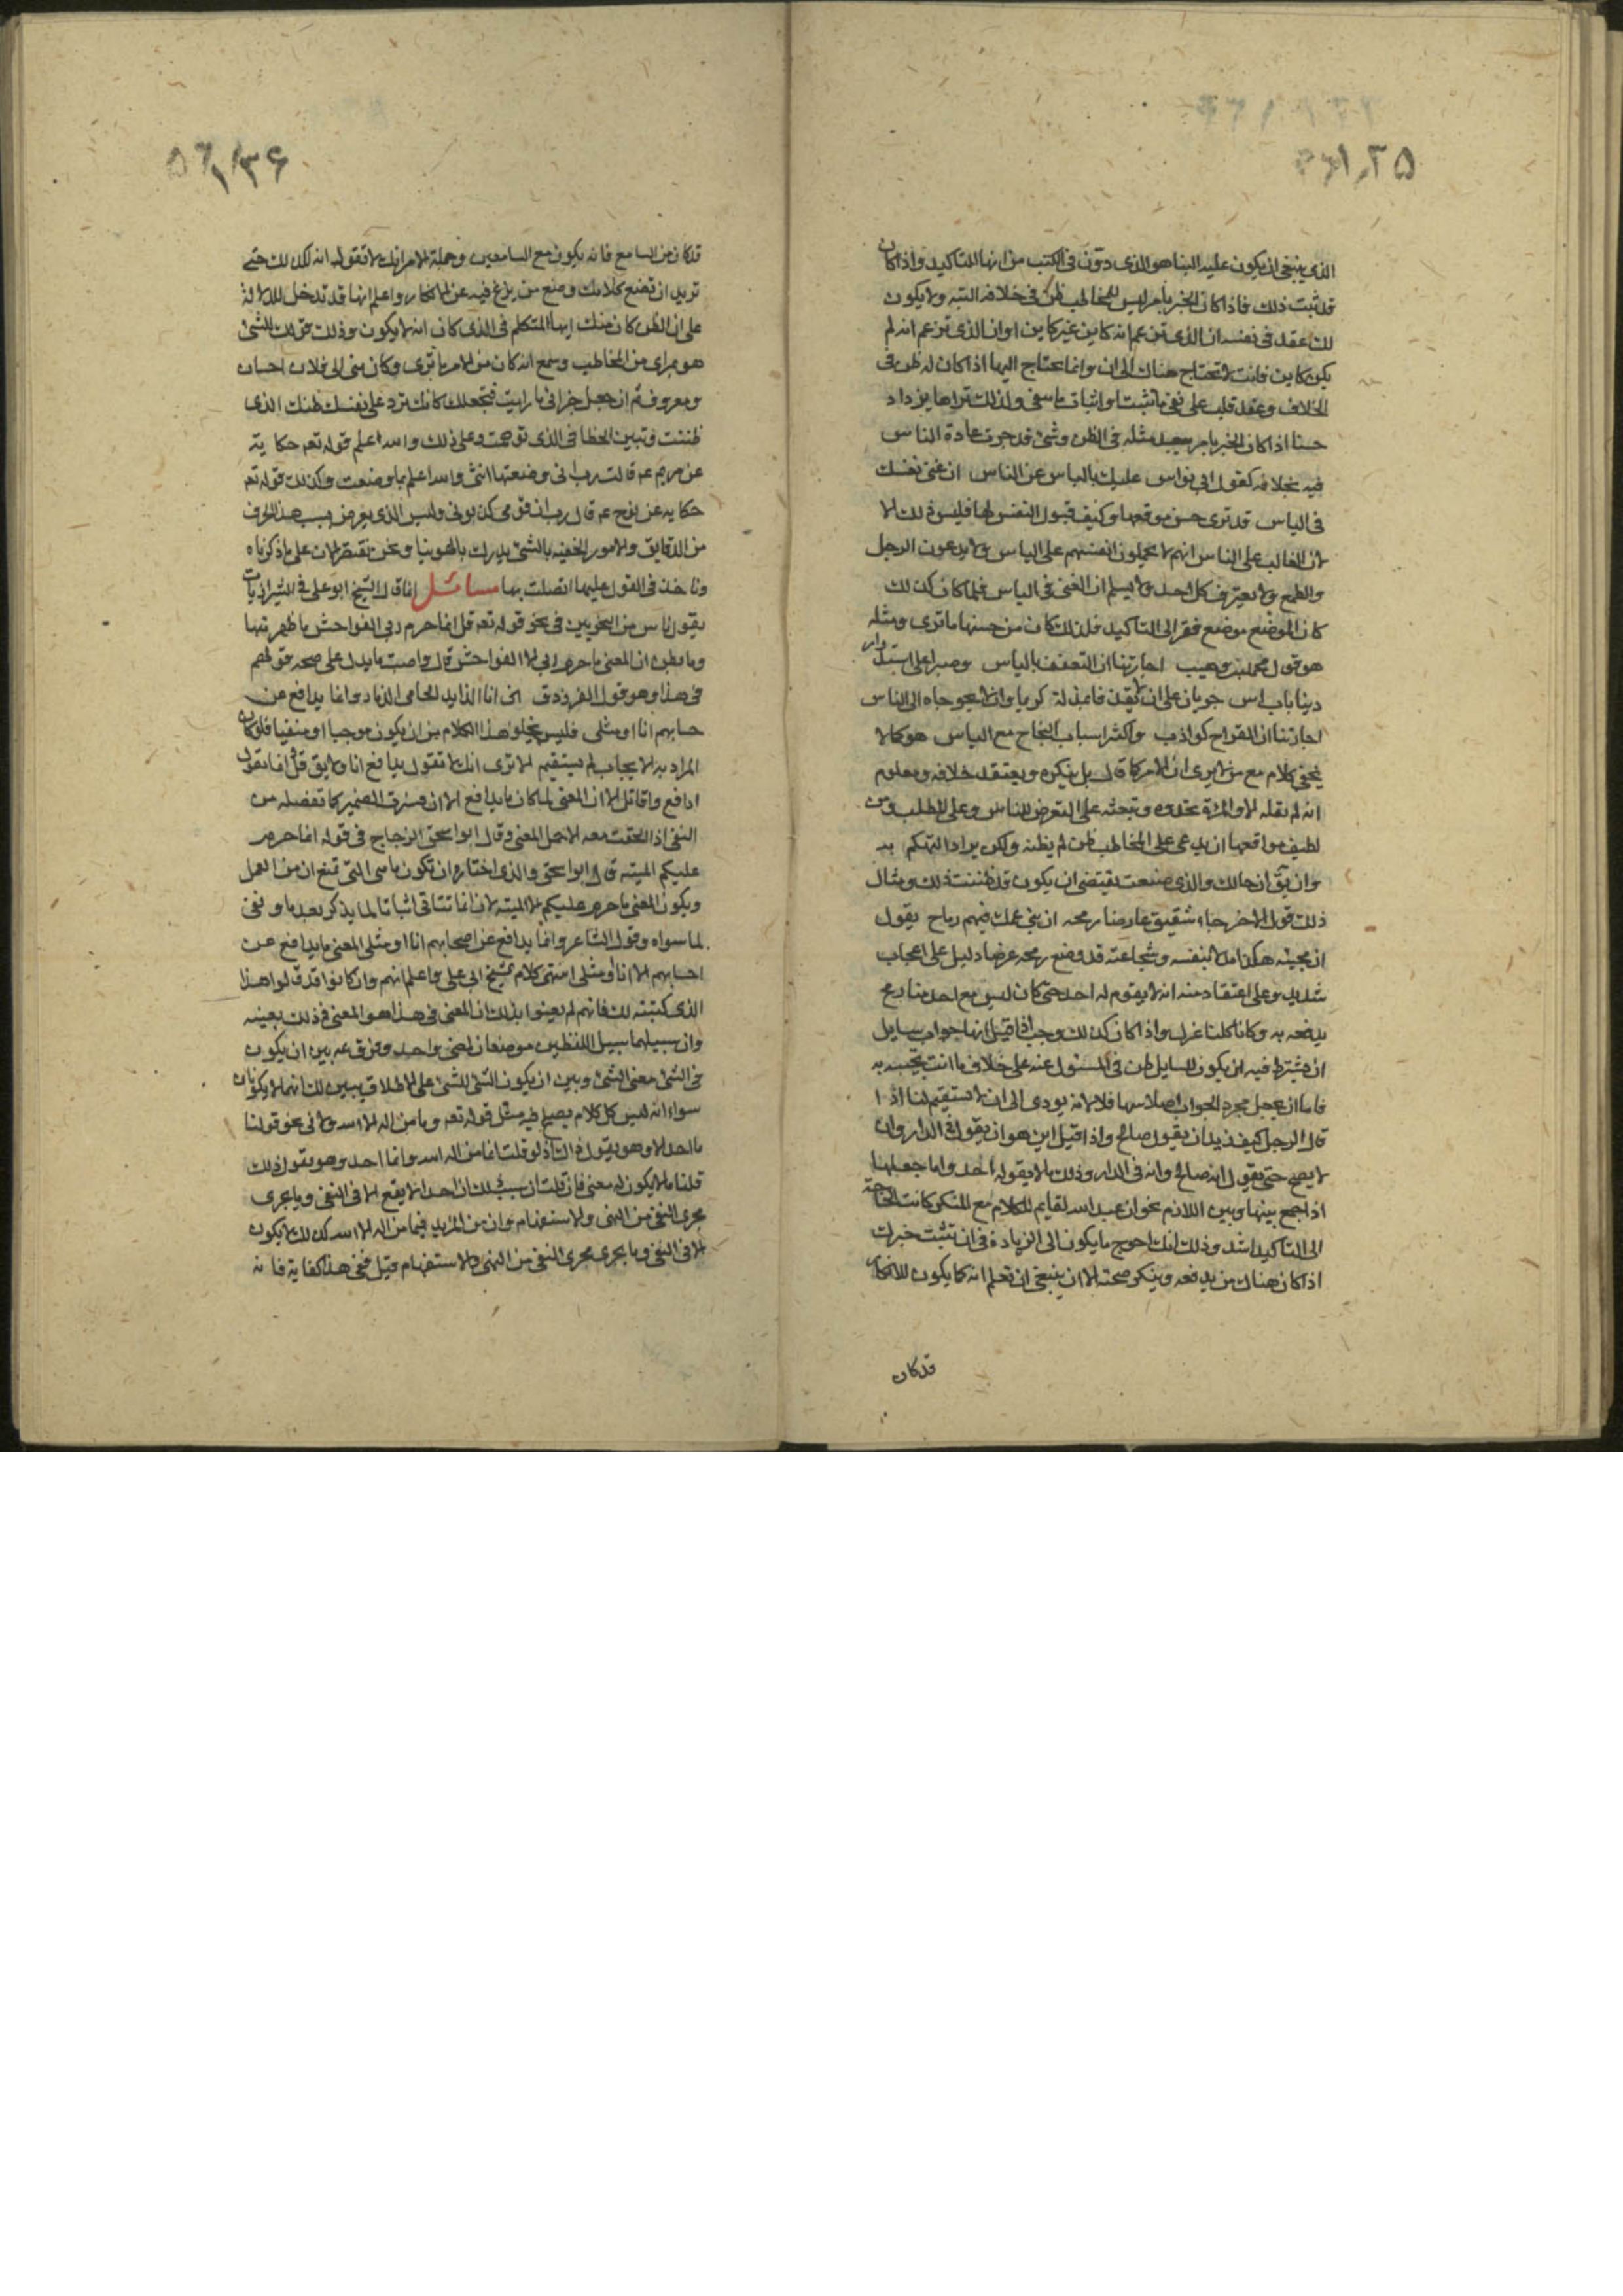 الذى ينبغى ان يكون عليه البنا هو الذى دوّن فى الكتب من انها للتاكيد واذا كان
قد ثبت ذلك فاذا كان الخبر بامر ليس للمخاطب ظن فى خلافه البته ولا يكون
لك عقد فى نفسه ان الذى تزعم انه كاين غير كاين او ان الذى تزعم انه لم
يكن كاين فانت لا تحتاج هناك الى ان وانما تحتاج اليها اذا كان له ظن فى
الخلاف وعقد قلب على نفى ما تثبت او اثبات ما تنفى ولذلك تراها يزداد
حسنا اذا كان الخبر بامر يبعد مثله فى الظن وشئ قد جرت عادة الناس
فيه بخلافه كقول ابى نواس عليك بالياس عن الناس ان غنى نفسك
فى الياس قد ترى حسن موقعها وكيف قبول النفس لها فليس ذلك الا
لان الغالب على الناس انهم لا يحملون انفسهم على الياس ولا يدعون الرجل
والطمع ولا يعترف كل احد ولا يسلم ان الغنى فى الياس فلما كان كذلك
كان الموضع موضع فقر الى التاكيد فلذلك كان من حسنها ما ترى ومثله
هو قول محمد بن وهيب اجارتنا ان التعفف بالياس وصبر على استدرار
دنيا باب اس جريان على ان لا يقذ فا بمذلة كريما وان لا يحوجاه الى الناس
اجارتنا ان القداح كواذب واكثر اسباب النجاح مع الياس هو كما لا
يخفى كلام مع من لا يرى ان الامر كما قال بل ينكره ويعتقد خلافه ومعلوم
انه لم يقله الا والمراة تحدوه وتبعثه على التعرض للناس وعلى الطلب ومن
لطيف مواقعها ان يدعى على المخاطب ظن لم يظنه ولكن يراد التهكم به
وان يقّ ان حالك والذى صنعت يقتضى ان يكون قد ظننت ذلك ومثال
ذلك قول الاخر جاء شقيق عارضا رمحه ان بنى عمك فيهم رماح يقول
ان مجيئه هكذا مدلا بنفسه وشجاعته قد وضع رمحه عرضا دليل على اعجاب
شديد وعلى اعتقاد منه انه لا يقوم له احد حتى كان ليس مع احد منا رمح
يدفعه به وكانا كلنا عزل واذا كان كذلك وجب اذا قيل انها جواب سايل
ان يشترط فيه ان يكون للسايل ظن فى المسئول عنه على خلاف ما انت تجيبه به
فاما ان يجعل مجرد الجواب اصلا سها فلا لانه يودى الى ان لا يستقيم لنا اذا
قال الرجل كيف زيد ان يقول صالح واذا قيل اين هو ان يقول فى الدار وان
لا يصح حتى يقول انه صالح وانه فى الدار وذلك ما لا يقوله احد واما جعلها
اذا جمع بينها وبين اللازم نحو ان عبد الله لقايم للكلام مع المنكر كانت الحاجة
الى التاكيد اشد وذلك انك احوج ما يكون الى الزيادة فى ان تثبت خبرك
اذا كان هناك من يدفعه وينكر صحته الا ان ينبغى ان تعلم انه كما يكون للانكار
قد كان
قد كان من السامع فانه يكون مع السامعين وجملة الامر انك لا تقول انه لكذلك حتى
تريد ان تضع كلامك وضع من يزغ فيه عن الانكار واعلم انها قد تدخل للدلالة
على ان الظن كان منك ايها المتكلم فى الذى كان انه لا يكون وذلك قولك للشئ
هو بمراى من المخاطب وسمع انه كان من الامر ما ترى وكان منى الى فلان احسان
ومعروف ثم انه جعل جزائى ما رايت فتجعلك كانك ترد على نفسك ظنك الذى
ظننت وتبين الخطا فى الذى توهمت وعلى ذلك والله اعلم قوله تعه حكاية
عن مريم عه قالت رب انى وضعتها انثى والله اعلم بما وضعت وكذلك قوله تعه
حكايه عن نوح عه قال رب ان قومى كذبونى وليس الذى يعرض بسبب هذا الحرف
من الدقايق والامور الخفيه بالشئ يدرك بالهوينا ونحن نقتصر الان على ما ذكرناه
وناخذ فى القول عليها اتصلت بها مسائل انما قال الشيخ ابو على فى الشيرازيات
يقول ناس من النحويين فى نحو قوله تعه قل انما حرم ربى الفواحش ما ظهر منها
وما بطن ان المعنى ما حرم ربى الا الفواحش قال واصبت ما يدل على صحه قولهم
فى هذا وهو قول الفرزدق انا الذايد الحامى الذمار وانما يدافع عن
حسابهم انا او مثلى فليس يخلو هذا الكلام من ان يكون موجبا او منفيا فلو كان
المراد به الايجاب لم يستقيم الا ترى انك لا تقول يدافع انا ولا يق قل انما تقول
ادافع واقاتل الا ان المعنى لما كان ما يدافع الا انا فصرف الضمير كما تفصله من
النفى اذا الحقت معه الا حمل المعنى وقال ابو اسحق الزجاج فى قوله انما حرم
عليكم الميته قال ابو اسحق والذى اختاره ان تكون ما هى التى تمنع ان من العمل
ويكون المعنى ما حرم عليكم الا الميته لان انما تتاتى اثباتا لما يذكر بعدها ونفى
لما سواه وقول الشاعر وانما يدافع عن اصحابهم انا او مثلى المعنى ما يدافع عن
احسابهم الا انا او مثلى انتهى كلام شيخ ابى على واعلم انهم وان كانوا قد قالوا هذا
الذى كتبته لك فانهم لم يعنوا بذلك ان المعنى فى هذا هو المعنى فى ذلك بعينه
وان سبيلهما سبيل اللفظين موضعان لمعنى واحد وفرق عه بين ان يكون
فى الشئ معنى الشئ وبين ان يكون الشئ للشئ على الاطلاق يبين لك انهما لا يكونان
سواء انه ليس كل كلام يصلح فيه مثل قوله تعه وما من اله الا الله ولا فى نحو قولنا
ما احد الا وهو يقول ذاك اذ لو قلت انما من اله الله وانما احد وهو يقول ذلك
قلنا ما لا يكون له معنى فان قلت ان سبب ذلك ان احدا لا يقع الا فى النفى وما يجرى
مجرى النفى من النهى والاستفهام وان من المزيد فيما من اله الا الله كذلك لا يكون
الا فى النفى وما يجرى مجرى النفى من النهى والاستفهام قيل ففى هذا كفاية فانه